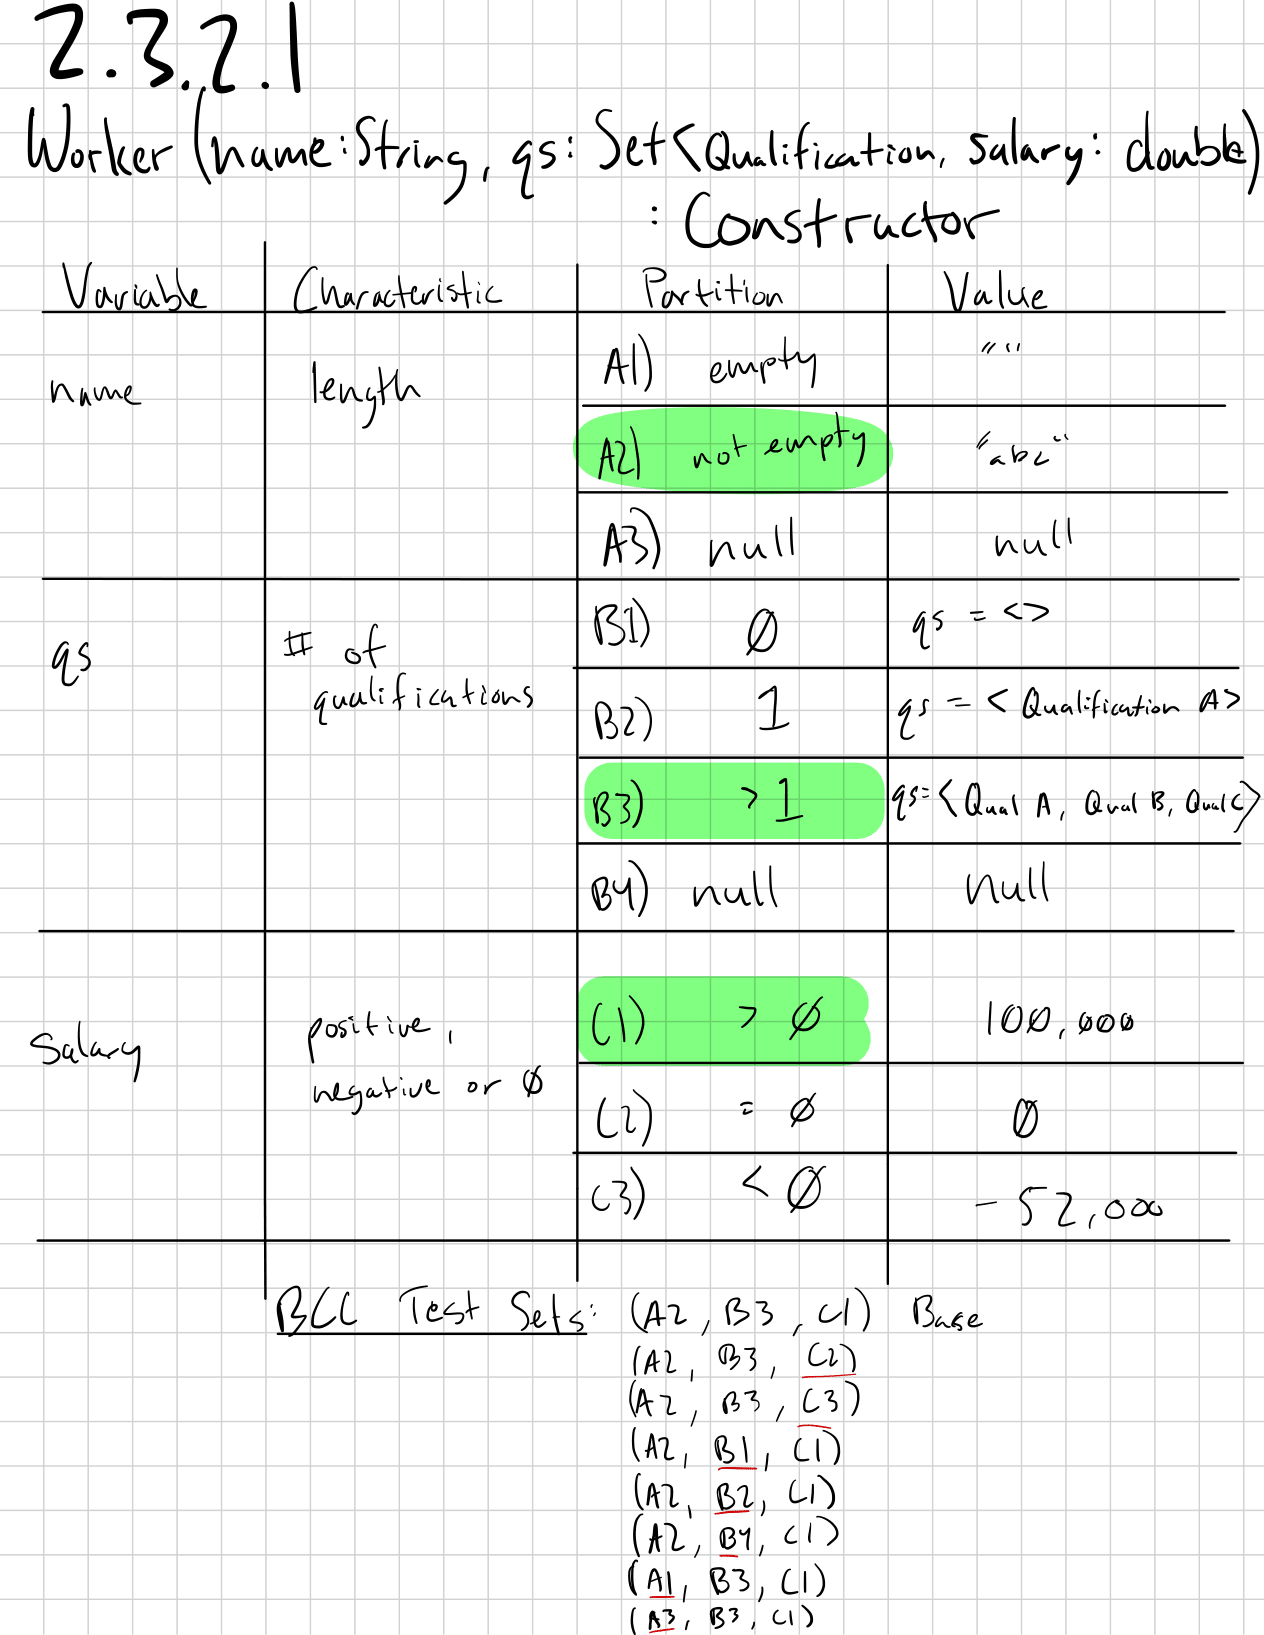 2.3.2.1
Worker (name: String, qs: Set<Qualification, salary: double)
: Constructor
Variable Characteristic Partition Value
name length A1) empty ""
A2) not empty "abc"
A3) null null
qs # of qualifications B1) Ø qs = <>
B2) 1 qs = < Qualification A>
B3) > 1 qs=<Qual A, Qual B, Qual C>
B4) null null
Salary positive, negative or Ø C1) > Ø 100,000
C2) = Ø Ø
C3) < Ø - 52,000
BCC Test Sets: (A2, B3, C1) Base
(A2, B3, C2)
(A2, B3, C3)
(A2, B1, C1)
(A2, B2, C1)
(A2, B4, C1)
(A1, B3, C1)
(A3, B3, C1)